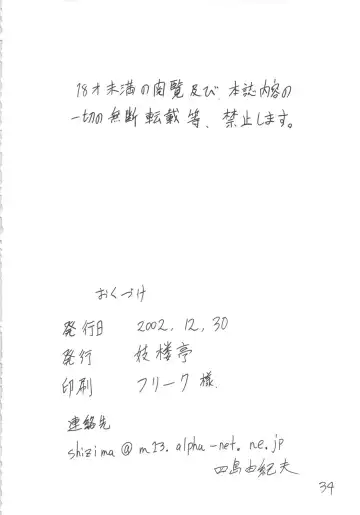 18才未満の閲覧及び、本誌内容の
一切の無断転載等、禁止します。
おくづけ
発行日 2002.12.30
発行 妓楼亭
印刷 フリーク様.
連絡先
shizima@m23.alpha-net.ne.jp
四島由紀夫
34